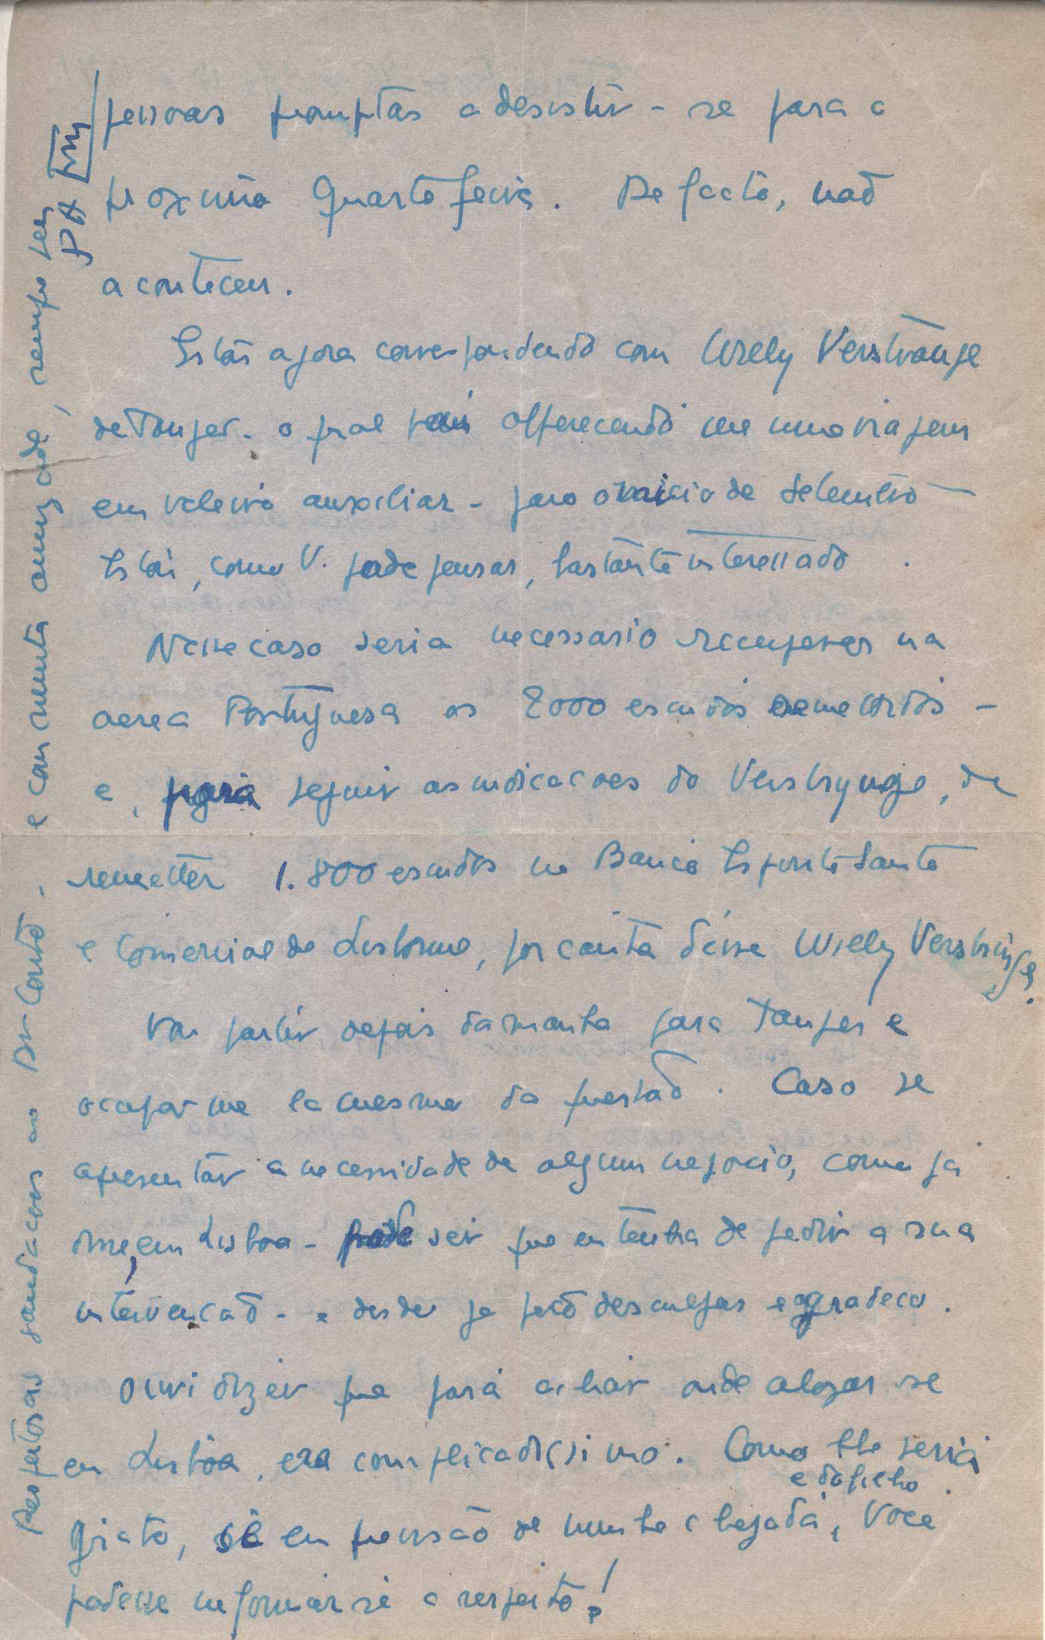 pessoas promptas a desistir - se para a
proxima Quarta feira. De facto, não
aconteceu.
Estou agora correspondendo com Willy Verstrange
de Tanger - o qual vem offerecendo me uma viagem
em veleiro auxiliar - para o inicio de Setembro -
Estou, como V. pode pensar, bastante interessado.
Nesse caso seria necessario recuperar na
aerea Portuguesa os 2000 escudos
e, para seguir as indicacoes do Verstrynge, de
remetter 1.800 escudos no Banco Espirito Santo
e Comercial de Lisbonne, por conta desse Willy Verstringe.
Vou partir depois damanha para Tanger e
ocupar me la mesmo da questão. Caso se
apresentar a necessidade de algum negocio, como ja
disse, em Lisboa - pode ser que eu tenha de pedir a sua
intervencão - e desde ja peco desculpas e aggradeco.
Ouvi dizer que para achar onde alojar se
em Lisboa, era complicadissimo. Como lhe seria
grato, se em previsão de minha chegada, Voce
e do filho.
podesse informar se a respeito!
Respeitosas saudacoes ao Dr Couto - e com muita amizade, sempre seu